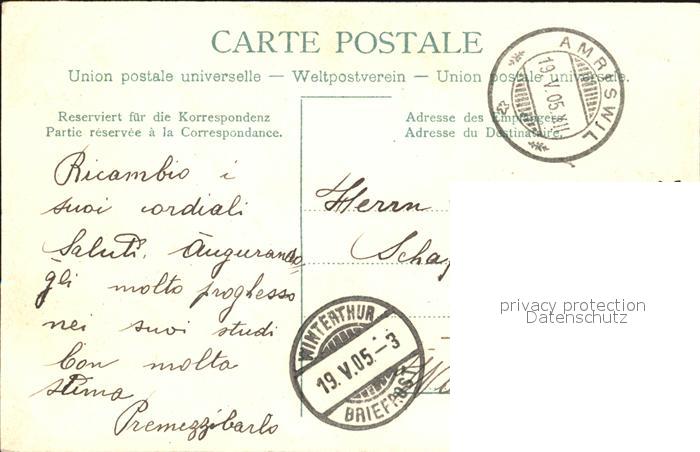 CARTE POSTALE
Union postale universelle — Weltpostverein — Union postale universale.
Reserviert für die Korrespondenz
Partie réservée à la Correspondance.
Adresse des Empfängers.
Adresse du Destinataire.
AMRISWIL
19.V.05.XII
Ricambio i
suoi cordiali
Saluti. Augurando
gli molto proghesso
nei suoi studi
Con molta
stima
Premezzi Carlo
Herrn
WINTERTHUR
19.V.05.-3
BRIEFPOST
privacy protection
Datenschutz